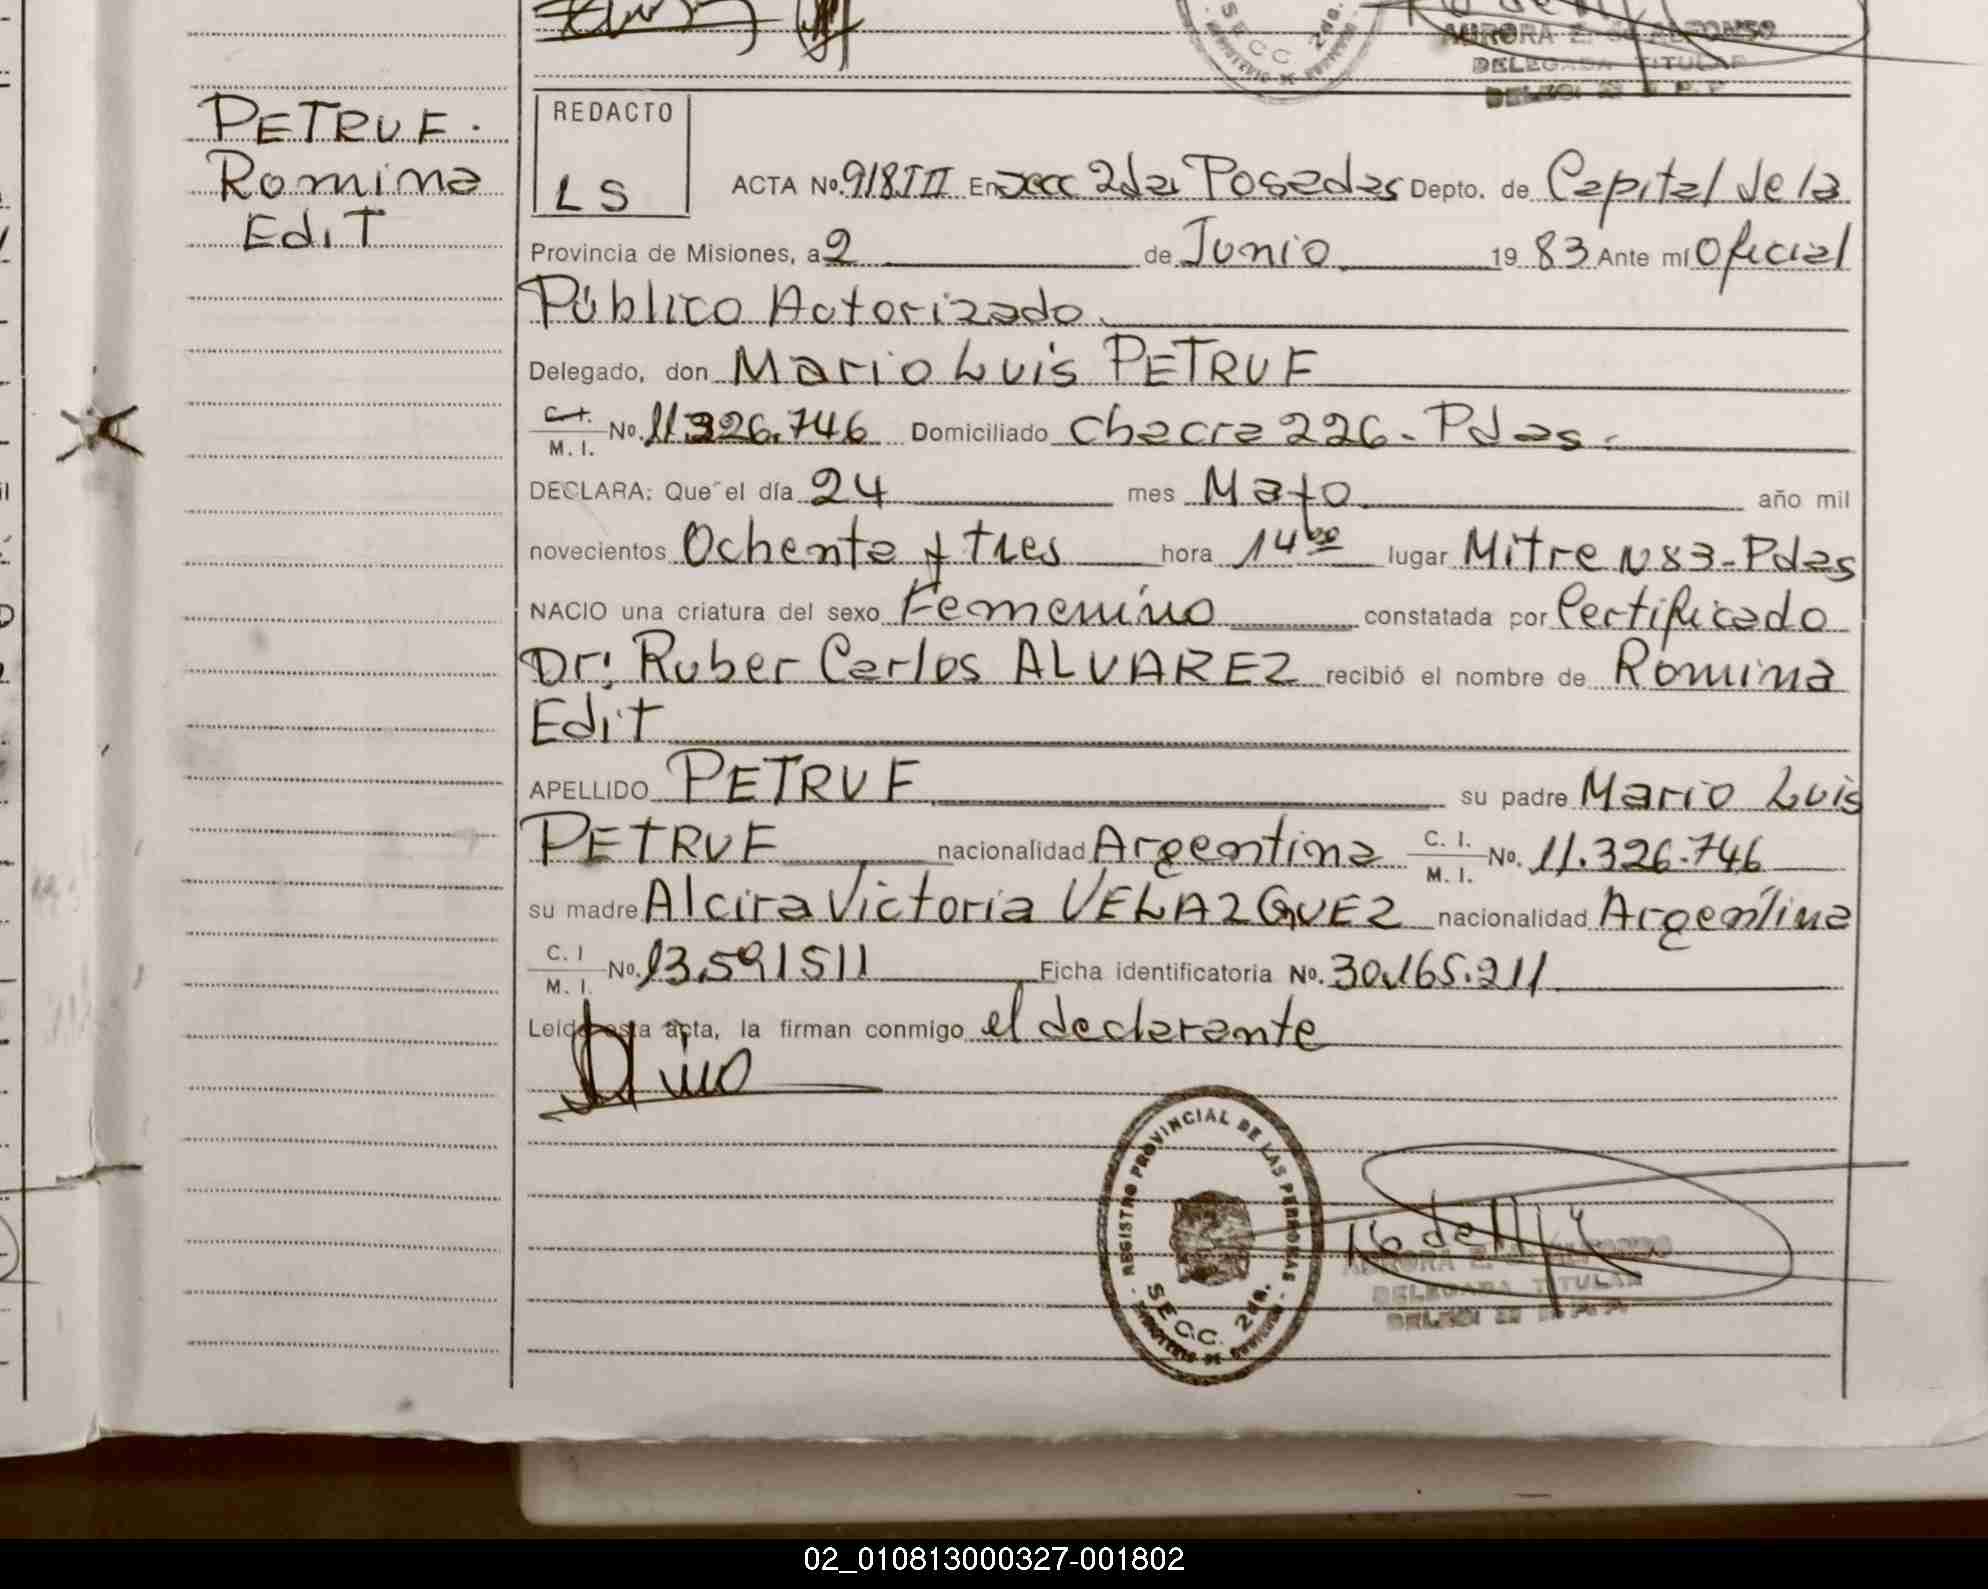 AURORA E. de ALFONSO
DELEGADA TITULAR
SECC 2da.
PETRUF.
Romina
Edit
REDACTO
LS
ACTA No. 918 TII En secc 2da Posadas Depto. de Capital de la
Provincia de Misiones, a 2 de Junio 19 83 Ante mí Oficial
Público Actorizado.
Delegado, don Mario Luis PETRUF
C.I. M. I. No. 11.326.746 Domiciliado Chacra 226. Pdas.
DECLARA: Que el día 24 mes Mayo año mil
novecientos Ochenta y tres hora 14 00 lugar Mitre N83-Pdas
NACIO una criatura del sexo Femenino constatada por Certificado
Dr: Ruber Carlos ALVAREZ recibió el nombre de Romina
Edit
APELLIDO PETRUF su padre Mario Luis
PETRUF nacionalidad Argentina C. I. M. I. No. 11.326.746
su madre Alcira Victoria VELAZQUEZ nacionalidad Argentina
C. I M. I. No. 13.591511 Ficha identificatoria No. 30.165.211
Leída esta acta, la firman conmigo el declarante
REGISTRO PROVINCIAL DE LAS PERSONAS
SECC. 2da.
MINISTERIO DE GOBIERNO
AURORA E. de ALFONSO
DELEGADA TITULAR
02_010813000327-001802